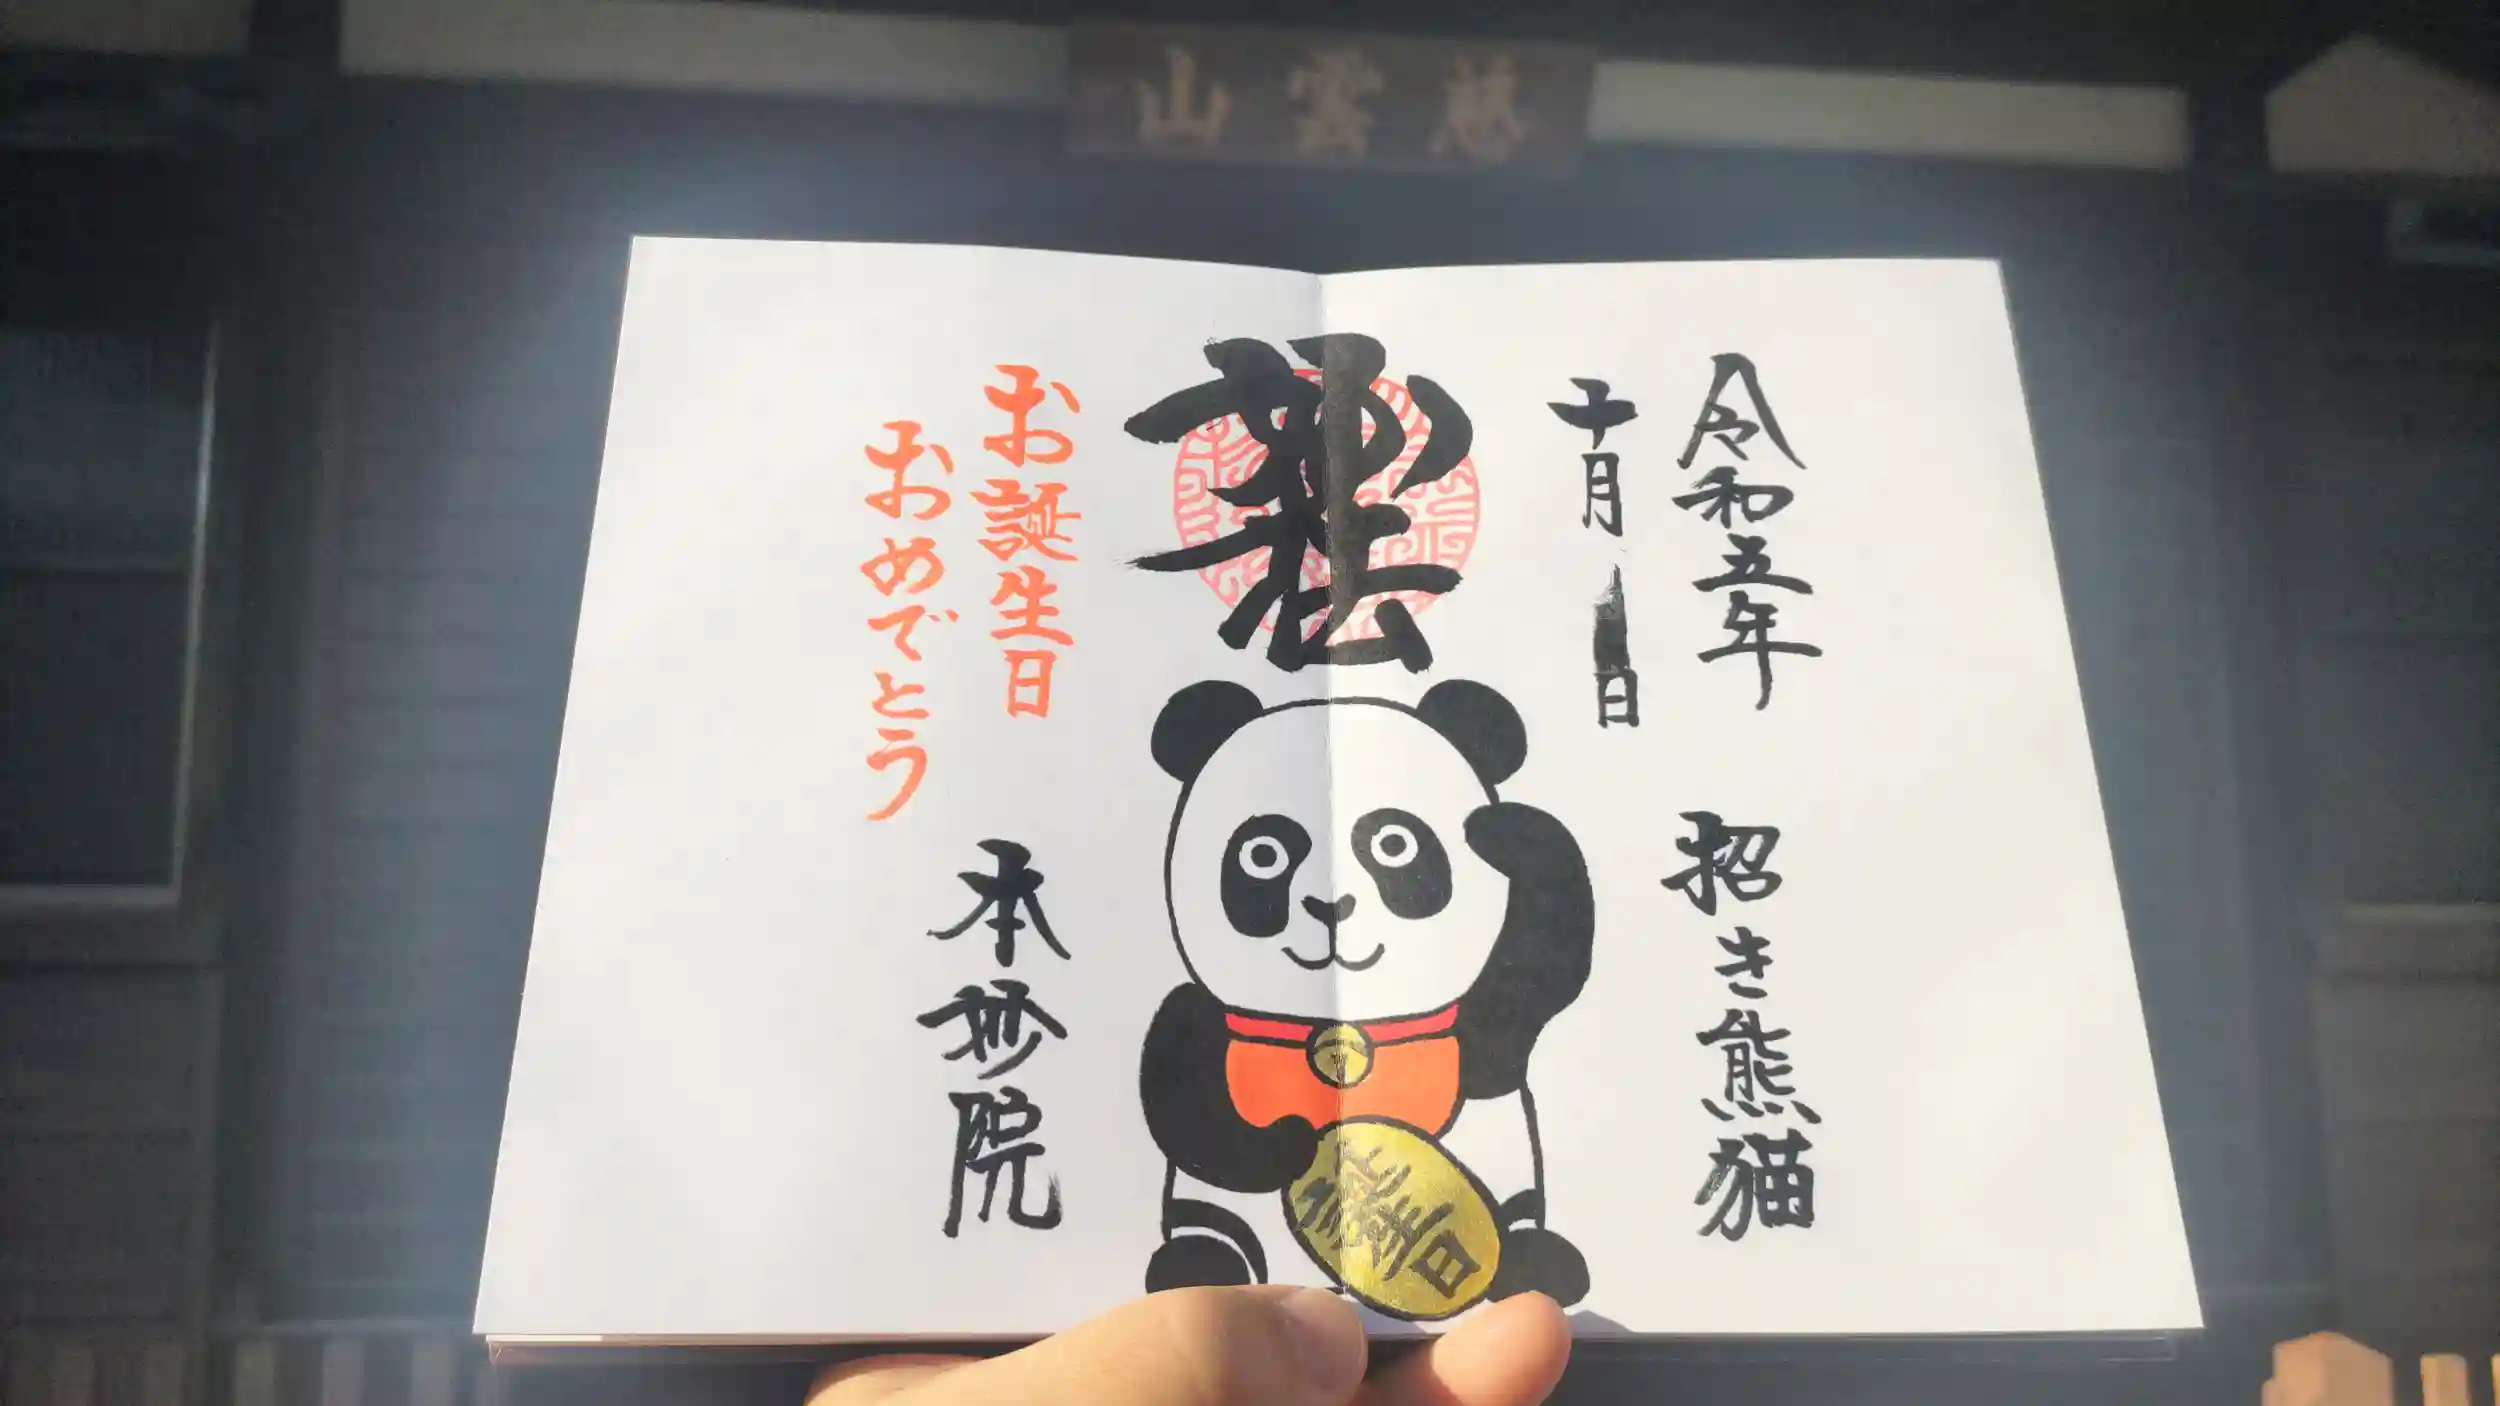 慈雲山
令和五年
十月 日
招き熊猫
妙法
誕生日
お誕生日
おめでとう
本妙院